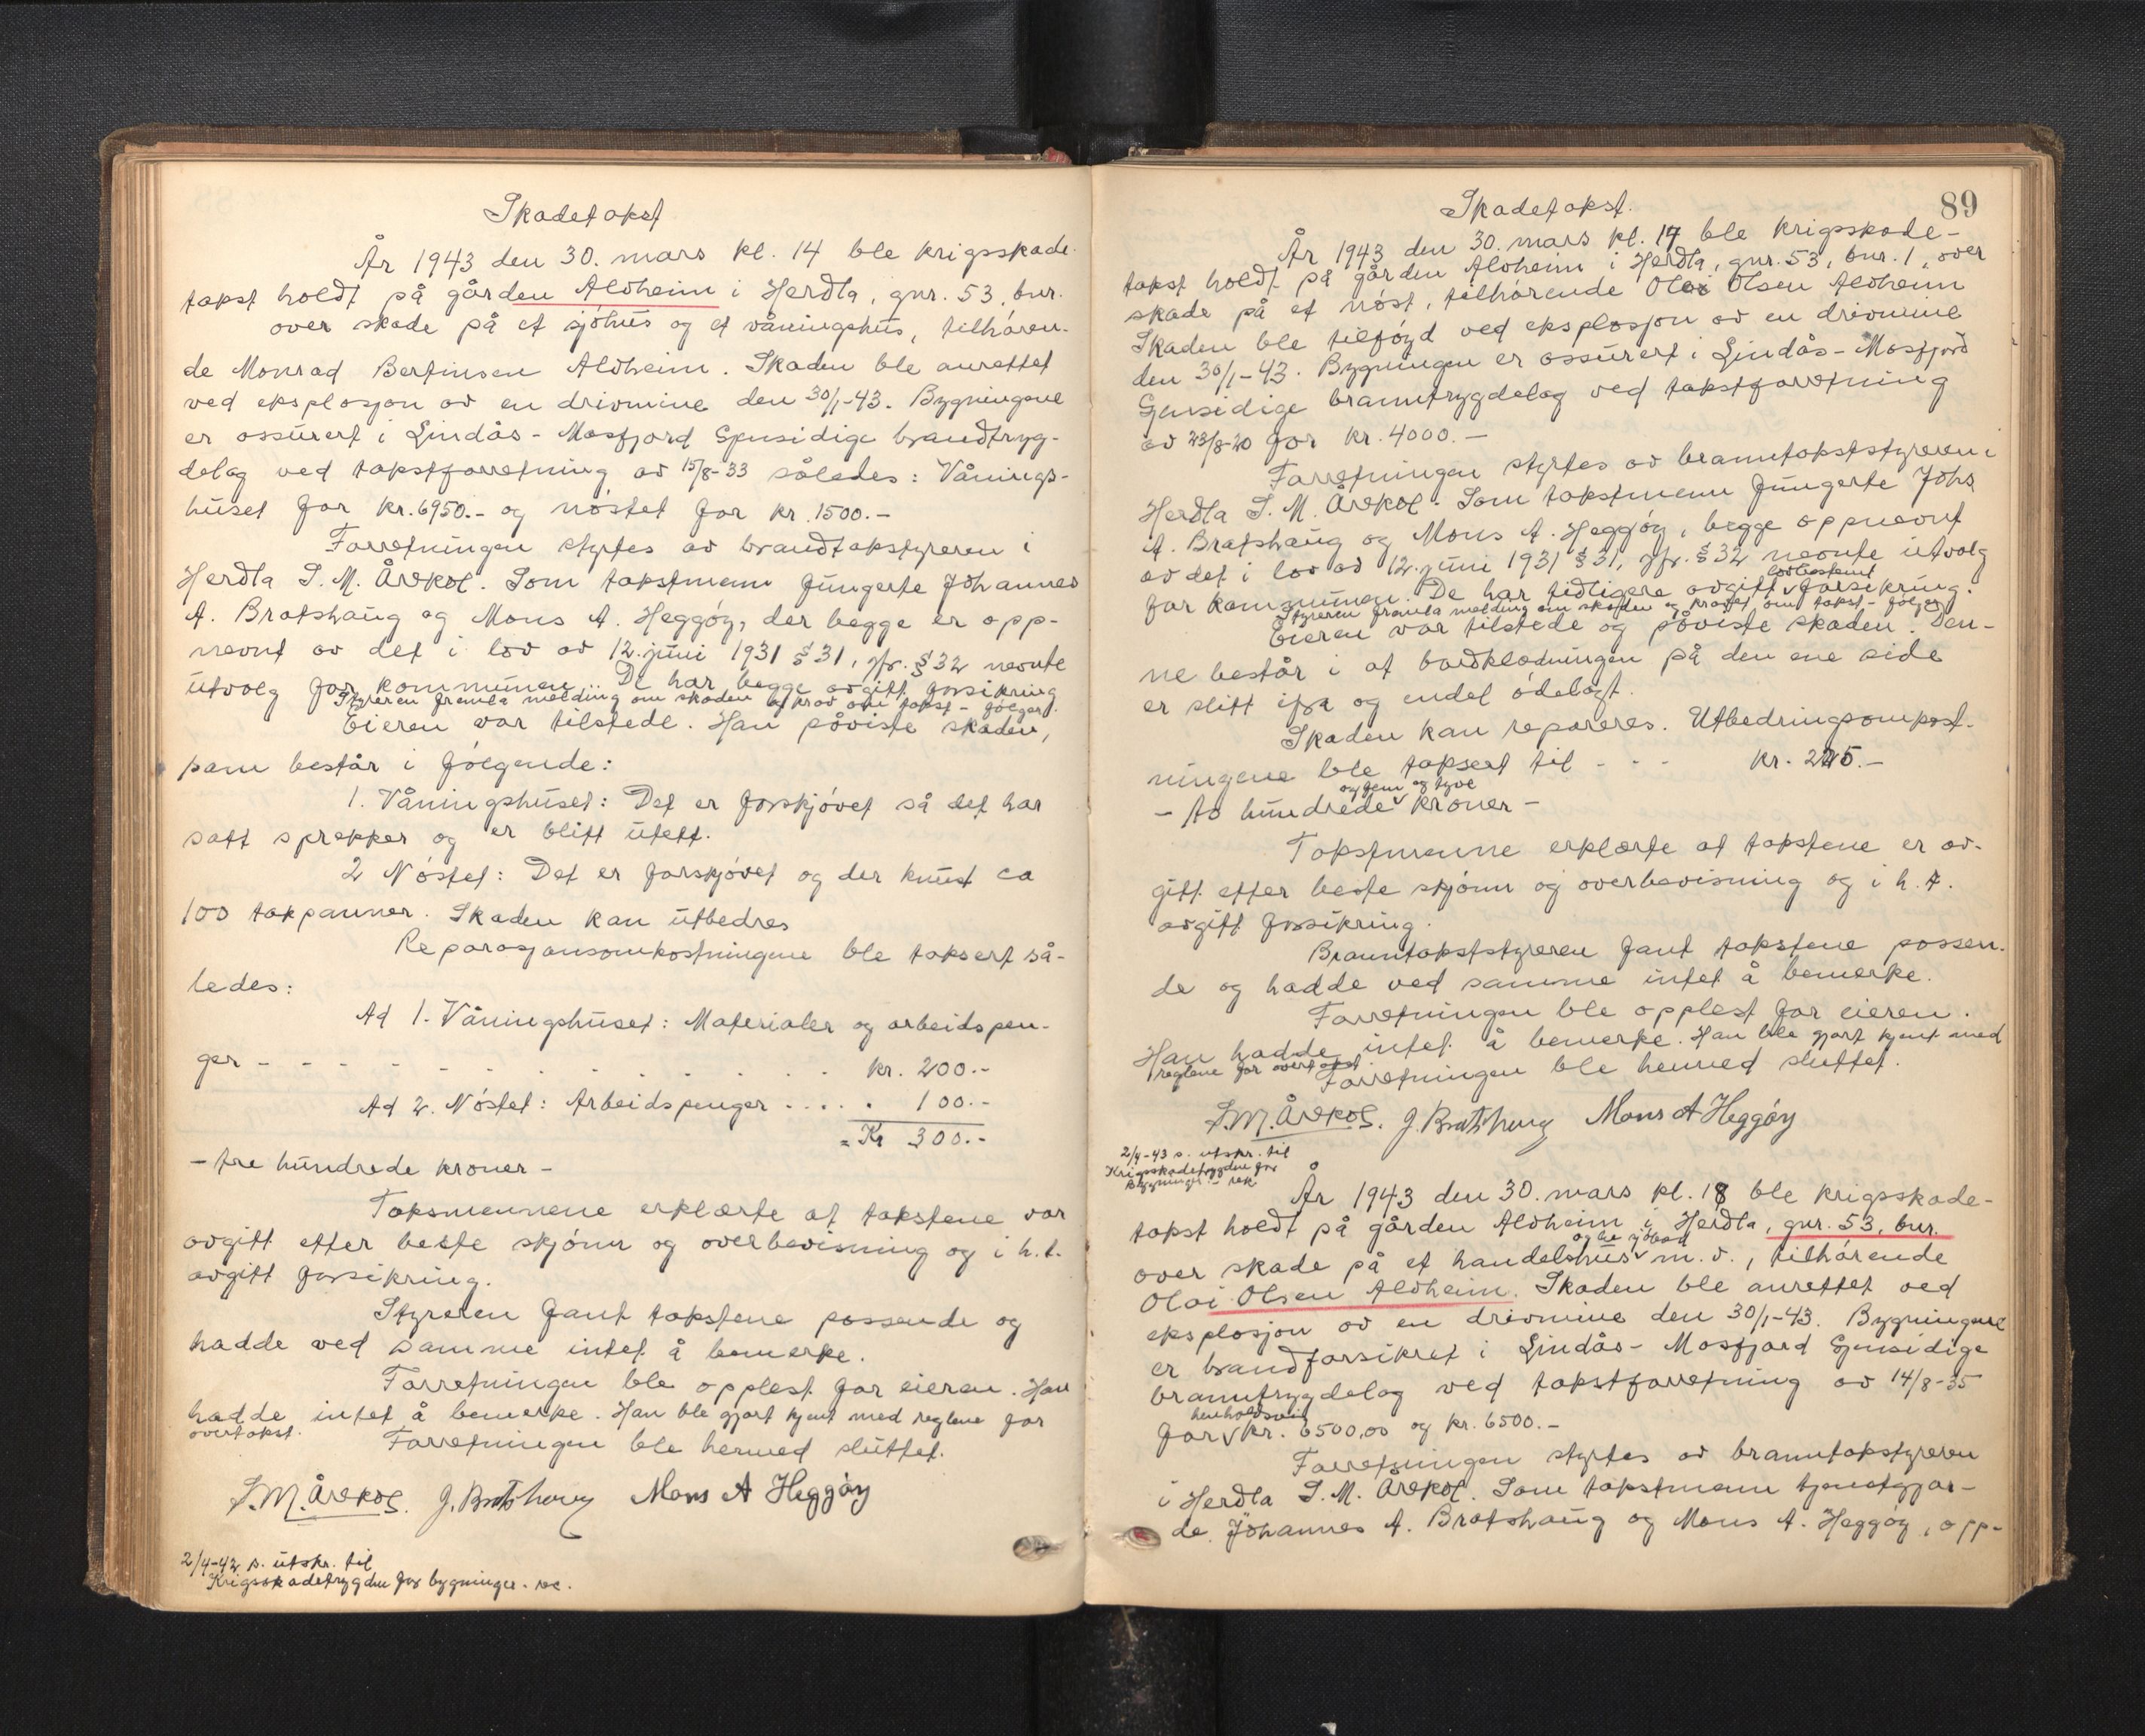 Skadetakst
År 1943 den 30. mars kl. 14 ble krigsskade-
takst holdt på gården Alvheim i Herdla, gnr. 53, bnr.
over skade på et sjøhus og et våningshus, tilhøren-
de Monrad Bertinsen Alvheim. Skaden ble anrettet
ved eksplosjon av en drivmine den 30/1-43. Bygningene
er assurert i Lindås-Masfjord Gjensidige brandtryg-
delag ved takstforretning av 15/8-33 således: Vånings-
huset for kr. 6950.- og nøstet for kr. 1500.-
Forretningen styrtes av brandtakstyreren i
Herdla S. M. Årskog. Som takstmenn fungerte Johannes
A. Bratshaug og Mons A. Heggøy, der begge er opp-
nevnt av det i lov av 12. juni 1931 § 31, jfr. § 32 nevnte
utvalg for kommunen. De har begge avgitt forsikring
Styreren framla melding om skaden og krav om takst - følger.
Eieren var tilstede. Han påviste skaden,
som består i følgende:
1. Våningshuset: Det er forskjøvet så det har
satt sprekker og er blitt utett.
2 Nøstet: Det er forskjøvet og der knust ca
100 takpanner. Skaden kan utbedres
Reparasjonsomkostningene ble taksert så-
ledes:
Ad 1. Våningshuset: Materialer og arbeidspen-
ger - - - - - - - - - - - kr. 200.-
Ad 2. Nøstet: Arbeidspenger . . . . . 100.-
= Kr 300.-
- tre hundrede kroner -
Taksmennene erklærte at takstene var
avgitt etter beste skjønn og overbevisning og i h.t.
avgitt forsikring.
Styreren fant takstene passende og
hadde ved samme intet å bemerke.
Forretningen ble opplest for eieren. Han
hadde intet å bemerke. Han ble gjort kjent med reglene for
overtakst.
Forretningen ble hermed sluttet.
S. M. Årskog. J. Bratshaug Mons A Heggøy
2/4-42 s. utskr. til
Krigsskadetrygden for bygninger. - rek.
89
Skadetakst.
År 1943 den 30. mars kl. 17 ble krigsskade-
takst holdt på gården Alvheim i Herdla, gnr. 53, bnr. 1, over
skade på et nøst, tilhørende Olai Olsen Alvheim
Skaden ble tilføyd ved eksplosjon av en drivmine
den 30/1-43. Bygningen er assurert i Lindås-Masfjord
Gjensidige branntrygdelag ved takstforretning
av 23/8-20 for kr. 4000.-
Forretningen styrtes av branntakststyreren i
Herdla S. M. Årskog. Som takstmenn fungerte Johs
A. Bratshaug og Mons A. Heggøy, begge oppnevnt
av det i lov av 12. juni 1931 § 31, jfr. § 32 nevnte utvalg
for kommunen. De har tidligere avgitt lovbestemt forsikring.
Styreren framla melding om skaden og kravet om takst - følger
Eieren var tilstede og påviste skaden. Den-
ne består i at bordkledningen på den ene side
er slitt ifra og endel ødelagt.
Skaden kan repareres. Utbedringsomkost-
ningene ble taksert til - - - kr. 225.-
- to hundrede og fem og tyve kroner -
Takstmenne erklærte at takstene er av-
gitt etter beste skjønn og overbevisning og i h. t.
avgitt forsikring.
Branntakststyreren fant takstene passen-
de og hadde ved samme intet å bemerke.
Forretningen ble opplest for eieren.
Han hadde intet å bemerke. Han ble gjort kjent med
reglene for overtakst.
Forretningen ble hermed sluttet.
S. M. Årskog. J. Bratshaug Mons A Heggøy
2/4-43 s. utskr. til
Krigsskadetrygden for
Bygninger - rek
År 1943 den 30. mars kl. 18 ble krigsskade-
takst holdt på gården Alvheim i Herdla, gnr. 53, bnr.
over skade på et handelshus m. v., tilhørende
Olai Olsen Alvheim. Skaden ble anrettet ved
eksplosjon av en drivmine den 30/1-43. Bygningene
er brandforsikret i Lindås-Masfjord Gjensidige
branntrygdelag ved takstforretning av 14/8-35
for henholdsvis kr. 6500,00 og kr. 6500.-
Forretningen styrtes av branntakstyreren
i Herdla S. M. Årskog. Som takstmenn tjenestgjor-
de Johannes A. Bratshaug og Mons A. Heggøy, opp-